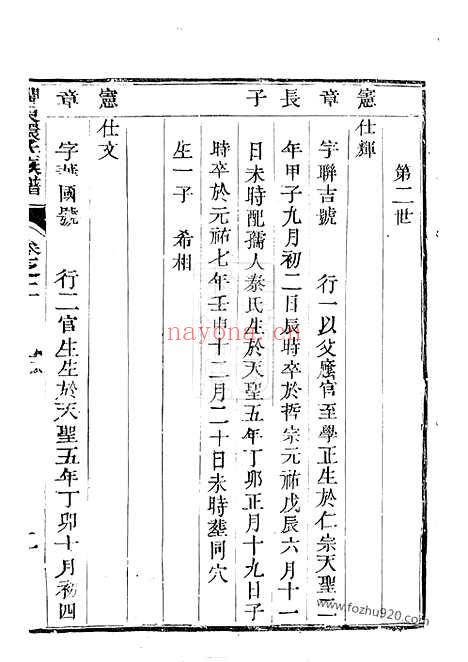 第二世
憲 仕輝
章 字聯吉號 行一以父廕官至學正生於仁宗天聖二
長 年甲子九月初二日辰時卒於哲宗元祐戊辰六月十一
子 日未時配孺人秦氏生於天聖五年丁卯正月十九日子
時卒於元祐七年壬申十二月二十日未時塟同穴
生一子 希相
憲 仕文
章 字國號 行二官生生於天聖五年丁卯十月初四
氏族譜 卷之二
nayona.cn
www.fozhu920.com